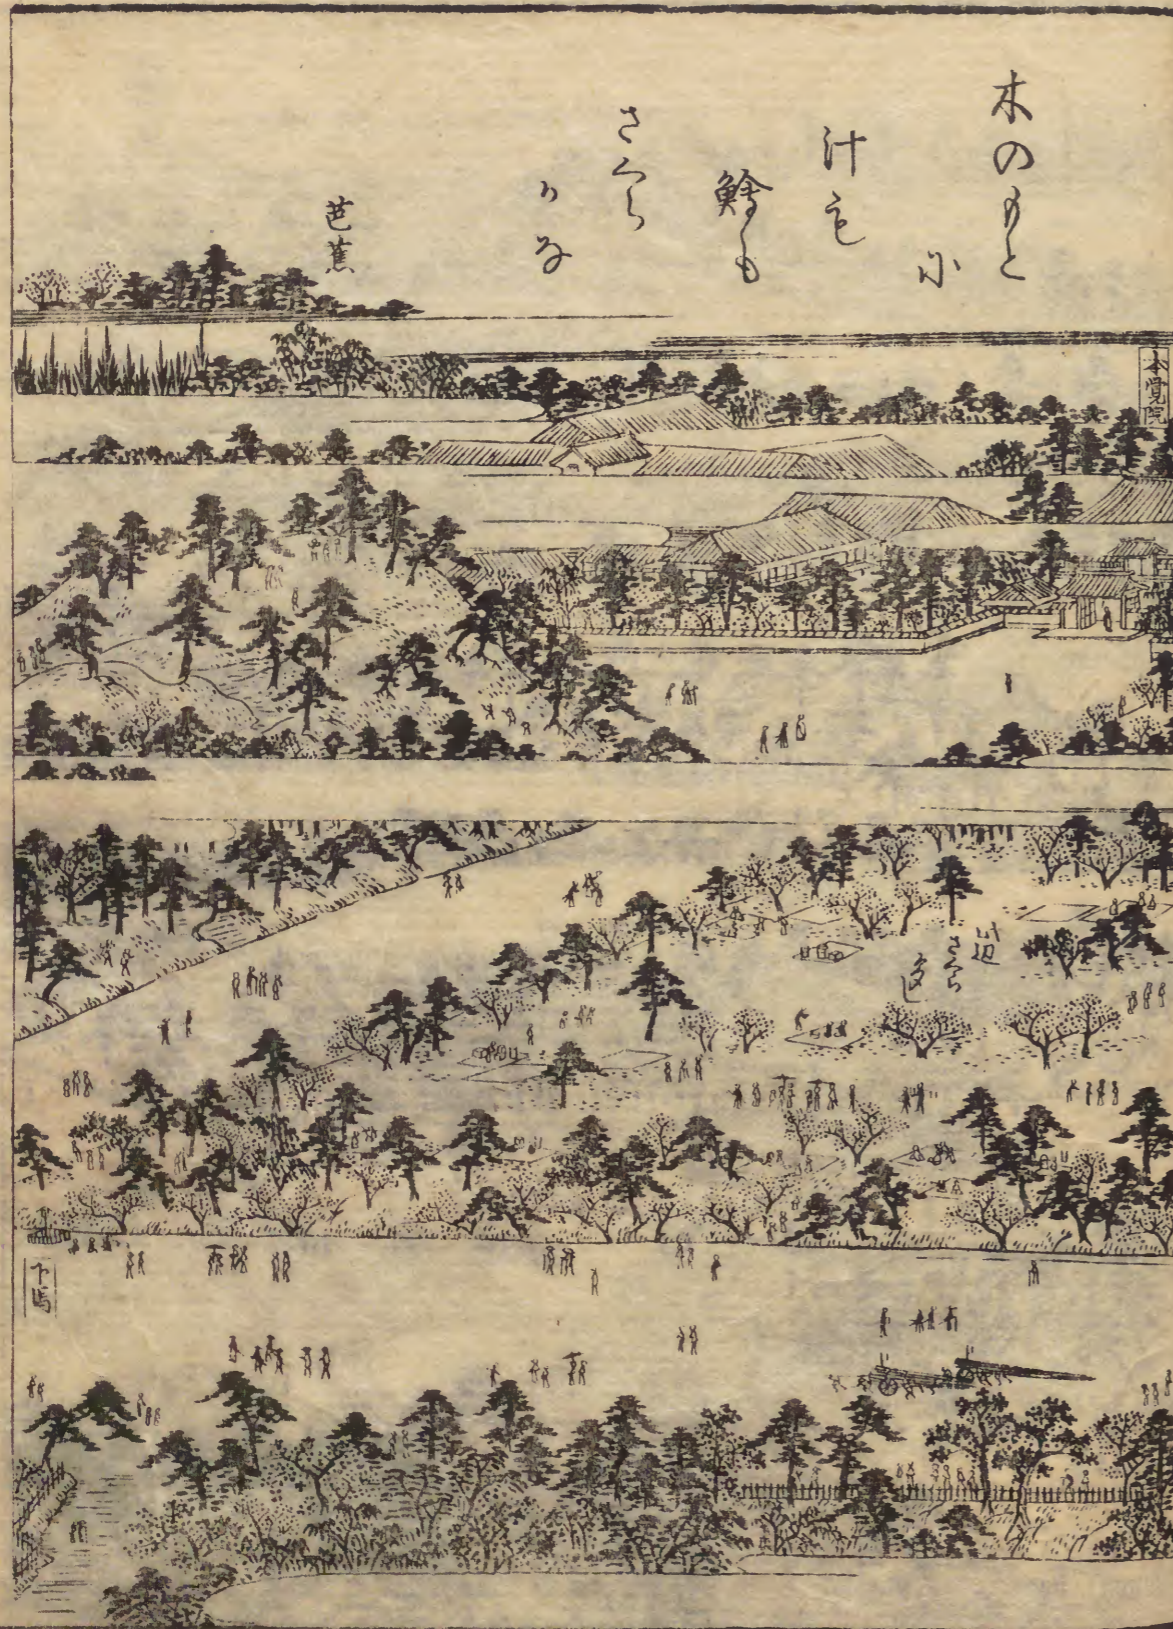 木のもと
に
汁も
鱠も
さくら
かな
芭蕉
本覚院
此辺
さくら
多し
下馬